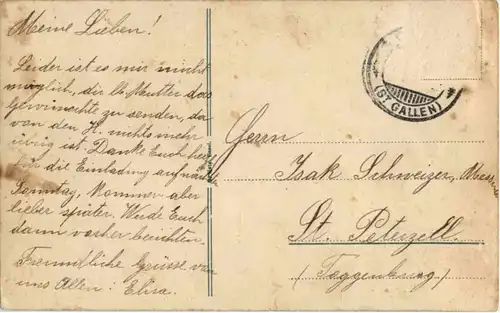 Meine Lieben!
Leider ist es mir nicht
möglich, dir lb. Mutter das
Gewünschte zu senden, da
von den H. nichts mehr
übrig ist. Danke Euch herz
für die Einladung auf nächs
Sonntag, Kommen aber
lieber später. Werde Euch
dann vorher berichten.
Freundliche Grüsse von
uns Allen: Elisa.
(ST GALLEN)
Herrn
Isak Schweizer,
St. Peterzell.
(Toggenburg)